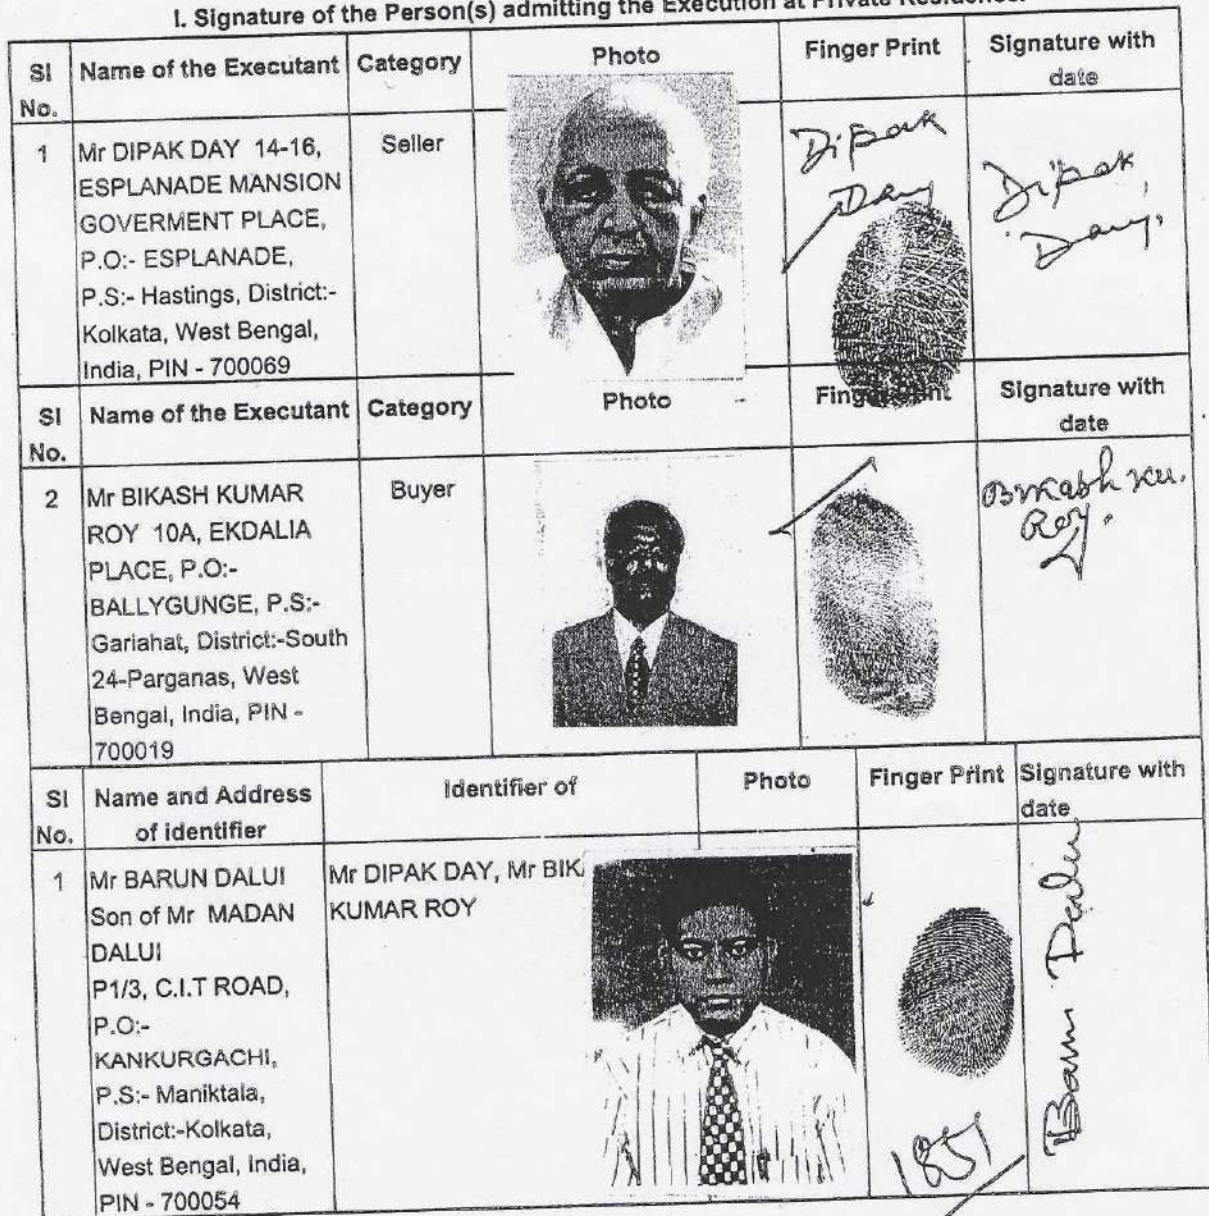 I. Signature of the Person(s) admitting the Execution at Private Residence.
Sl No. Name of the Executant Category Photo Finger Print Signature with date
1 Mr DIPAK DAY 14-16,
ESPLANADE MANSION
GOVERMENT PLACE,
P.O:- ESPLANADE,
P.S:- Hastings, District:-
Kolkata, West Bengal,
India, PIN - 700069
Seller
Dipak
Day
Dipak
Day.
Sl No. Name of the Executant Category Photo Finger Print Signature with date
2 Mr BIKASH KUMAR
ROY 10A, EKDALIA
PLACE, P.O:-
BALLYGUNGE, P.S:-
Gariahat, District:-South
24-Parganas, West
Bengal, India, PIN -
700019
Buyer
Bikash Ku.
Roy.
Sl No. Name and Address of identifier Identifier of Photo Finger Print Signature with date
1 Mr BARUN DALUI
Son of Mr MADAN
DALUI
P1/3, C.I.T ROAD,
P.O:-
KANKURGACHI,
P.S:- Maniktala,
District:-Kolkata,
West Bengal, India,
PIN - 700054
Mr DIPAK DAY, Mr BIK
KUMAR ROY
Barun Dalui